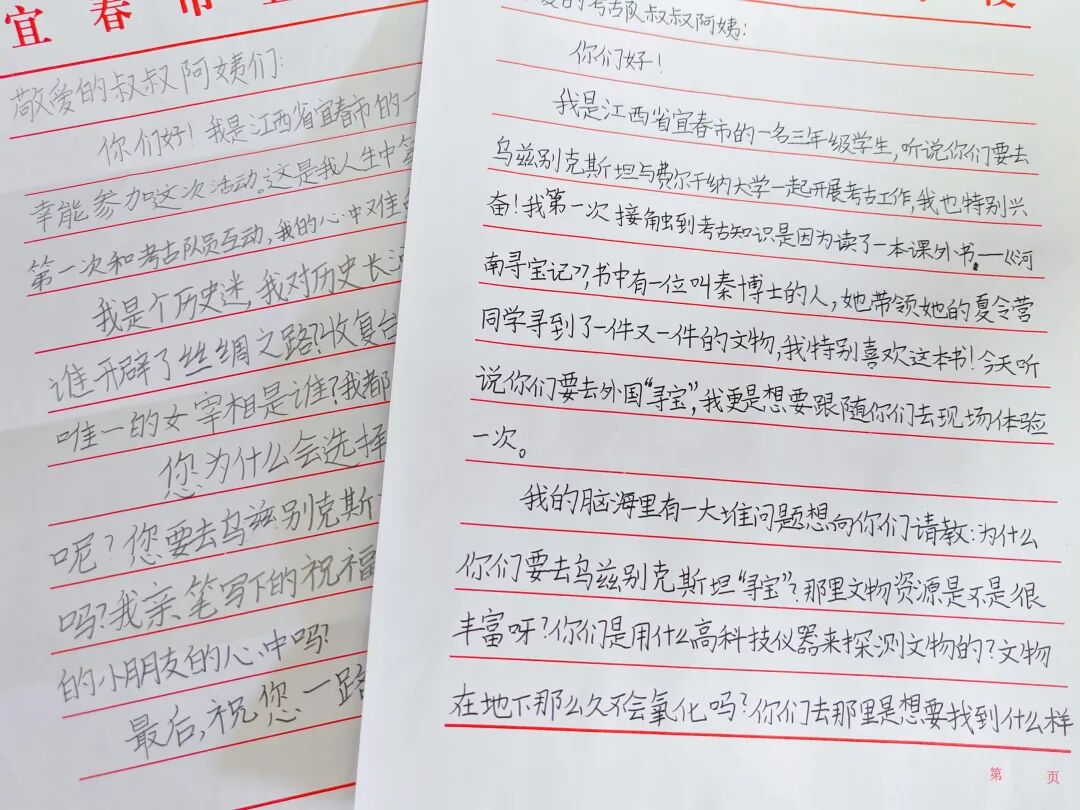 宜春市
敬爱的叔叔阿姨们:
你们好!我是江西省宜春市的一
幸能参加这次活动。这是我人生中第
第一次和考古队员互动,我的心中难
我是个历史迷,我对历史长河
谁开辟了丝绸之路?收复台
唯一的女宰相是谁?我都
您为什么会选择
呢?您要去乌兹别克斯
吗?我亲笔写下的祝福
的小朋友的心中吗?
最后,祝您一路
爱的考古队叔叔阿姨:
你们好!
我是江西省宜春市的一名三年级学生,听说你们要去
乌兹别克斯坦与费尔干纳大学一起开展考古工作,我也特别兴
奋!我第一次接触到考古知识是因为读了一本课外书——《河
南寻宝记》,书中有一位叫秦博士的人,她带领她的夏令营
同学寻到了一件又一件的文物,我特别喜欢这本书!今天听
说你们要去外国“寻宝”,我更是想要跟随你们去现场体验
一次。
我的脑海里有一大堆问题想向你们请教:为什么
你们要去乌兹别克斯坦“寻宝”?那里文物资源是不是很
丰富呀?你们是用什么高科技仪器来探测文物的?文物
在地下那么久不会氧化吗?你们去那里是想要找到什么样
第 页